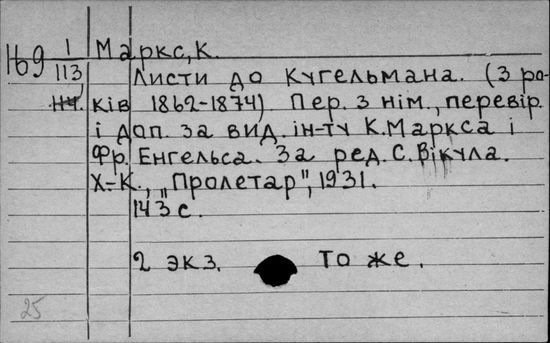 169 1/113 Маркс, К.
Листи до Кугельмана. (З ро-
ків 1862-1874). Пер. з нім., перевір.
і доп. за вид. ін-ту К. Маркса і
Фр. Енгельса. За ред. С. Вікула.
Х-К., „Пролетар", 1931.
143 с.
2 экз. То же.
25